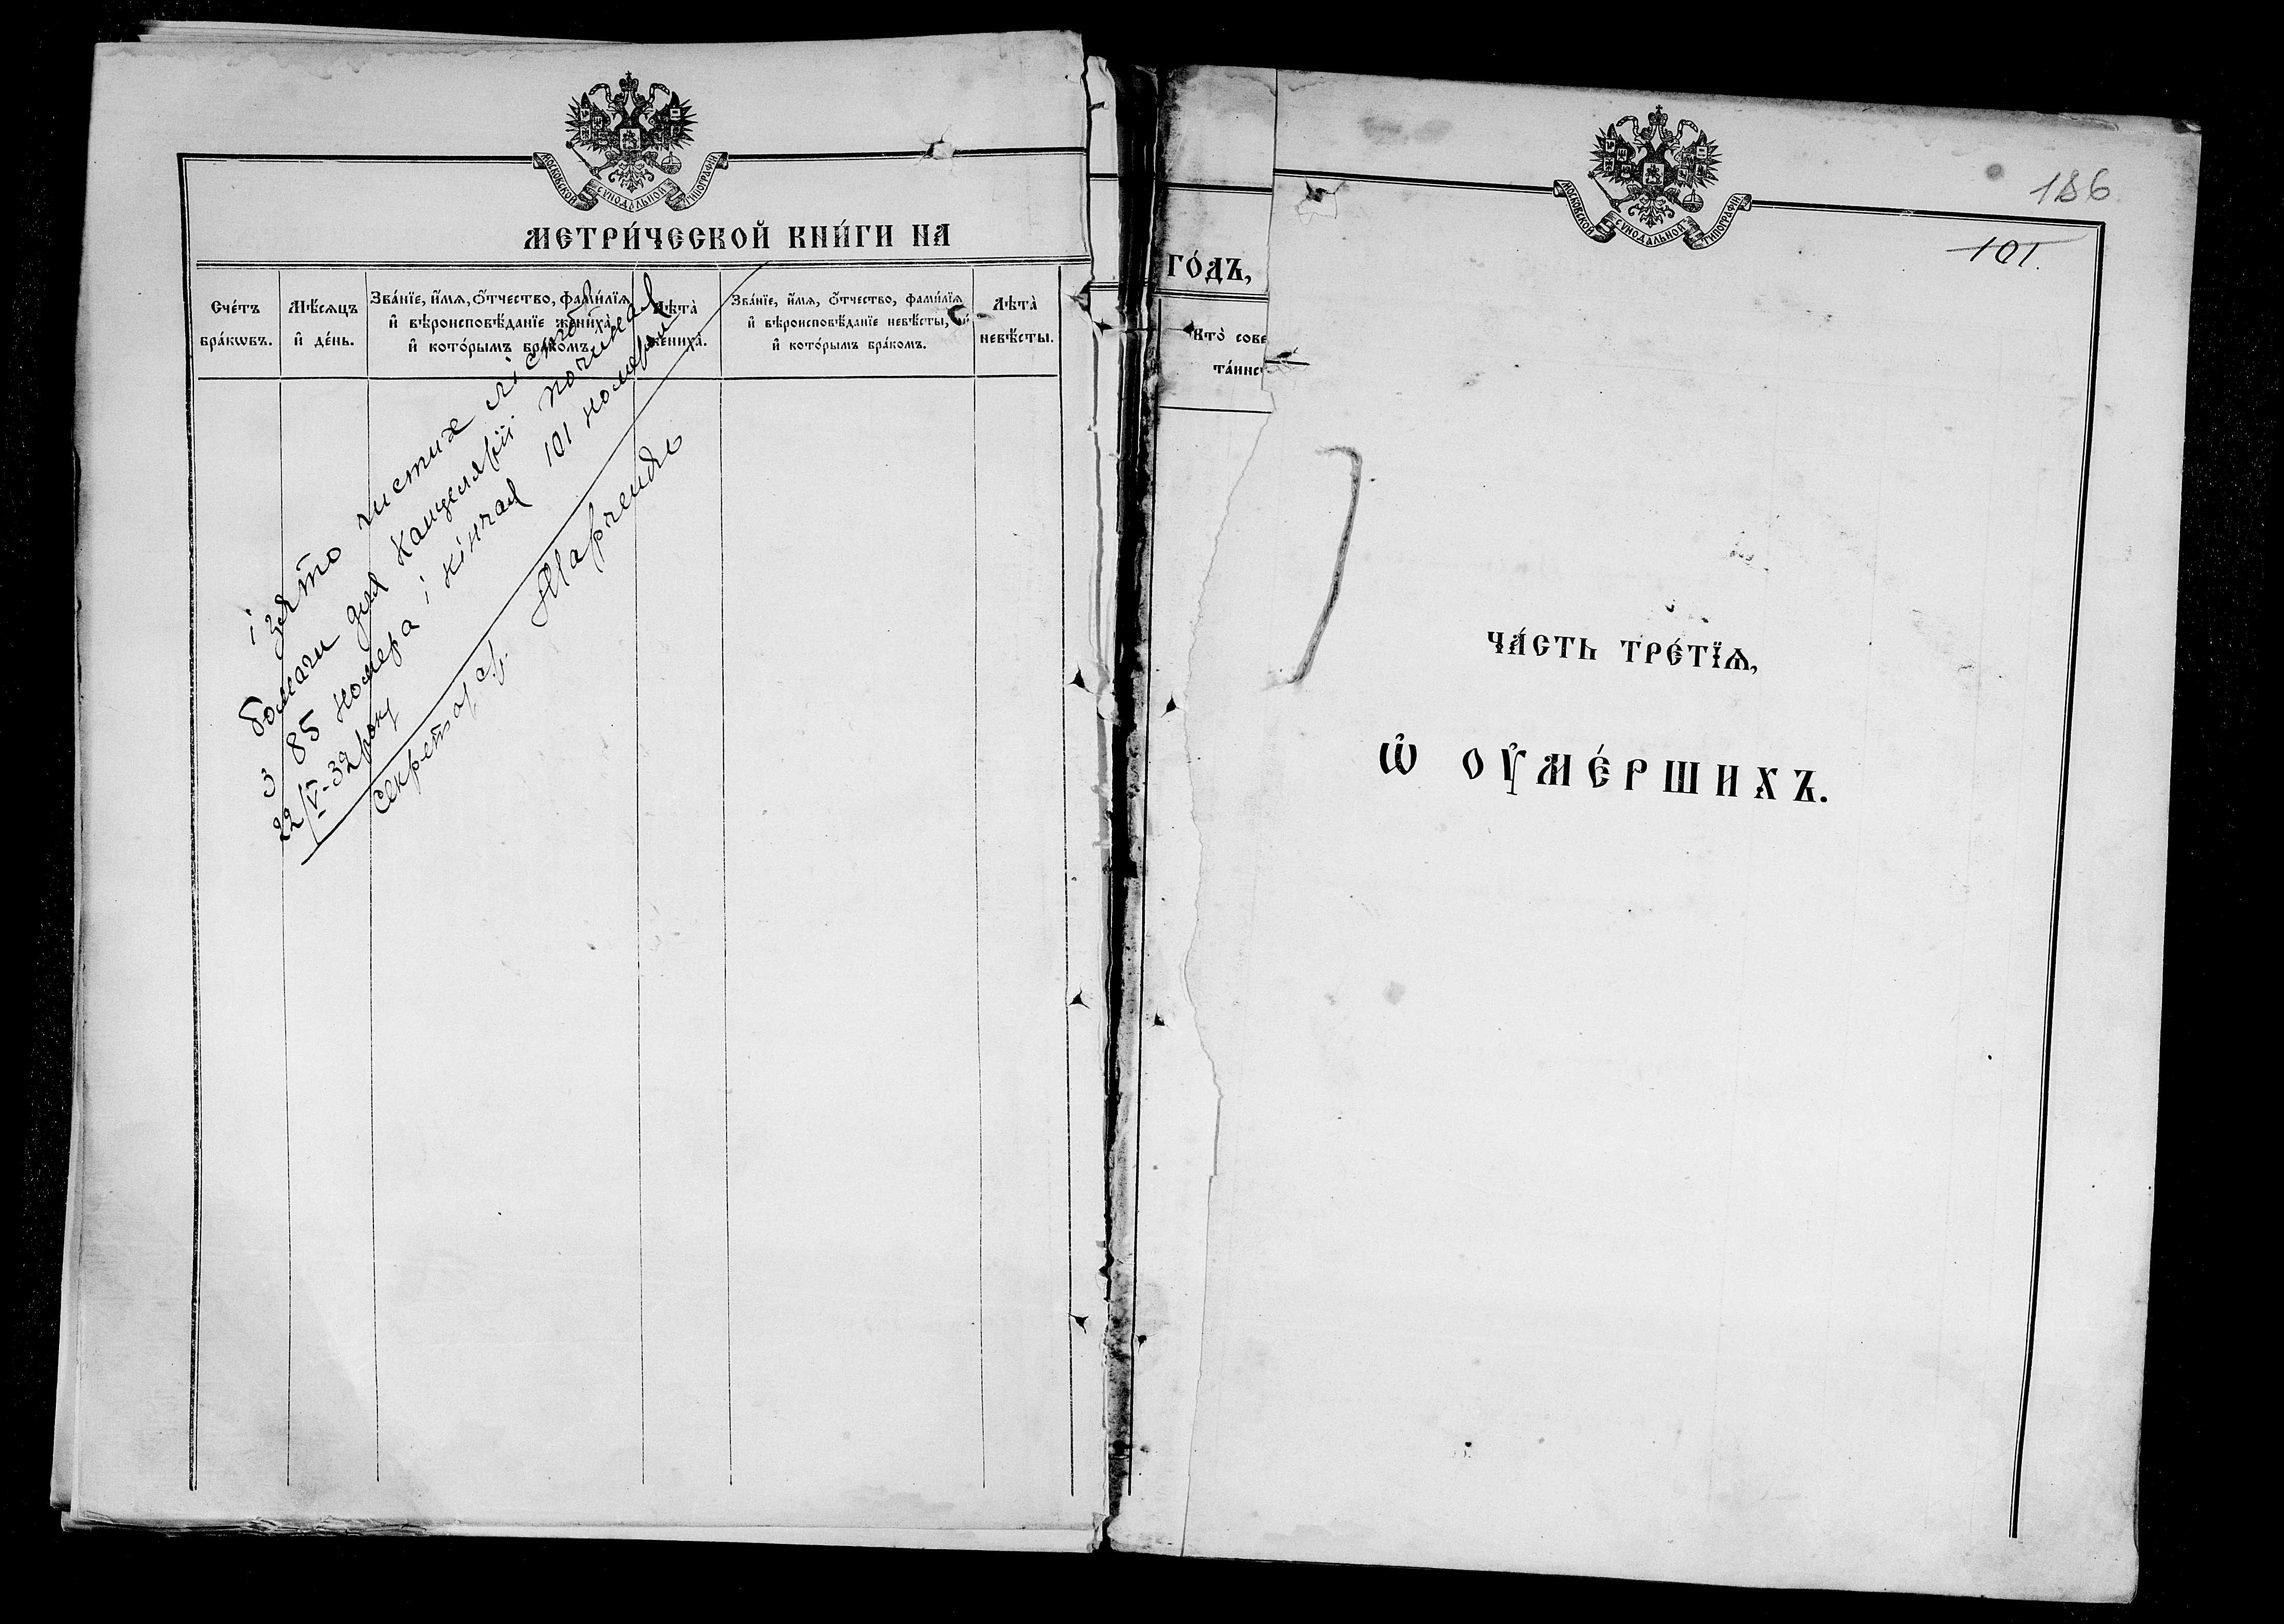 МОСКОВСКОЙ СУНОДАЛЬНОЙ ТИПОГРАФІИ
МЕТРИ́ЧЕСКОЙ КНИ́ГИ НА
Сче́тъ
бра́кѡвъ.
Мѣ́сѧцъ
и҆ де́нь.
Зва́нїе, и҆́мѧ, ѻ҆́тчество, фами́лїѧ
и҆ вѣроисповѣ́данїе жениха̀,
и҆ кото́рымъ бра́комъ.
Лѣ́та̀
жениха̀.
Зва́нїе, и҆́мѧ, ѻ҆́тчество, фами́лїѧ
и҆ вѣроисповѣ́данїе невѣ́сты, и҆
и҆ кото́рымъ бра́комъ.
Лѣ́та̀
невѣ́сты.
ізято чистих листов
бомаги для канцелярії починая
з 85 номера і кінчая 101 номером
22/V-32 року
Секретар с/р. Марченко
ГО́ДЪ,
Кто̀ сове
та́инс
МОСКОВСКОЙ СУНОДАЛЬНОЙ ТИПОГРАФІИ
186
101.
ЧА́СТЬ ТРЕ́ТЇѦ,
Ѡ҆ ОУ҆МЕ́РШИХЪ.